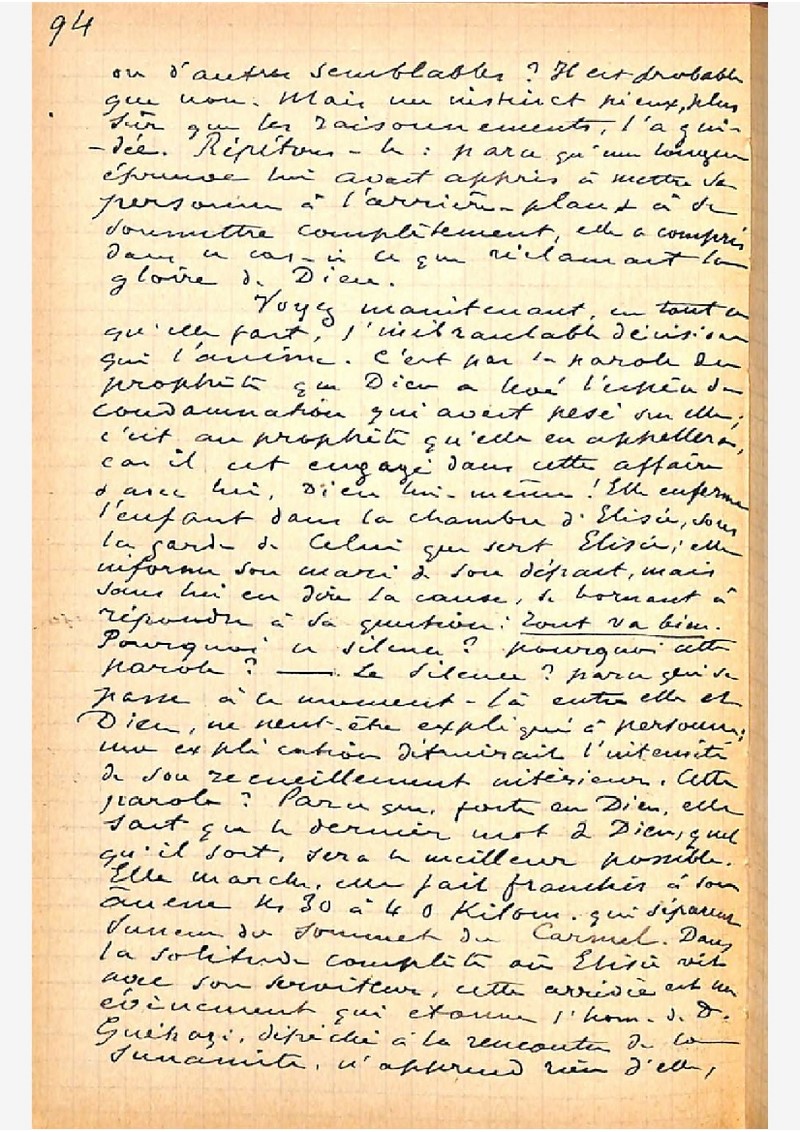 94
ou d'autres semblables ? Il est probable
que non. Mais un instinct pieux, plus
sûr que les raisonnements, l'a gui-
-dée. Répétons-le : parce qu'une longue
épreuve lui avait appris à mettre sa
personne à l'arrière-plan & à se
soumettre complètement, elle a compris
dans ce cas-ci ce que réclamait la
gloire de Dieu.
Voyez maintenant, en tout ce
qu'elle fait, l'inébranlable décision
qui l'anime. C'est par la parole du
prophète que Dieu a levé l'espèce de
condamnation qui avait pesé sur elle ;
c'est au prophète qu'elle en appellera,
car il est engagé dans cette affaire
& avec lui, Dieu lui-même ! Elle enferme
l'enfant dans la chambre d'Elisée, sous
la garde de Celui que sert Elisée ; elle
informe son mari de son départ, mais
sans lui en dire la cause, se bornant à
répondre à sa question : tout va bien.
Pourquoi ce silence ? pourquoi cette
parole ? — Le silence ? parce qui se
passe à ce moment-là entre elle et
Dieu, ne peut-être expliqué à personne ;
une explication détruirait l'intensité
de son recueillement intérieur. Cette
parole ? Parce que, forte en Dieu, elle
sait que le dernier mot de Dieu, quel
qu'il soit, sera le meilleur possible.
Elle marche, elle fait franchir à son
ânesse les 30 à 40 Kilom. qui séparent
Sunem du sommet du Carmel. Dans
la solitude complète où Elisée vit
avec son serviteur, cette arrivée est un
évènement qui étonne l'hom. de D.
Guéhazi, dépêché à la rencontre de la
Sunamite, n'apprend rien d'elle,